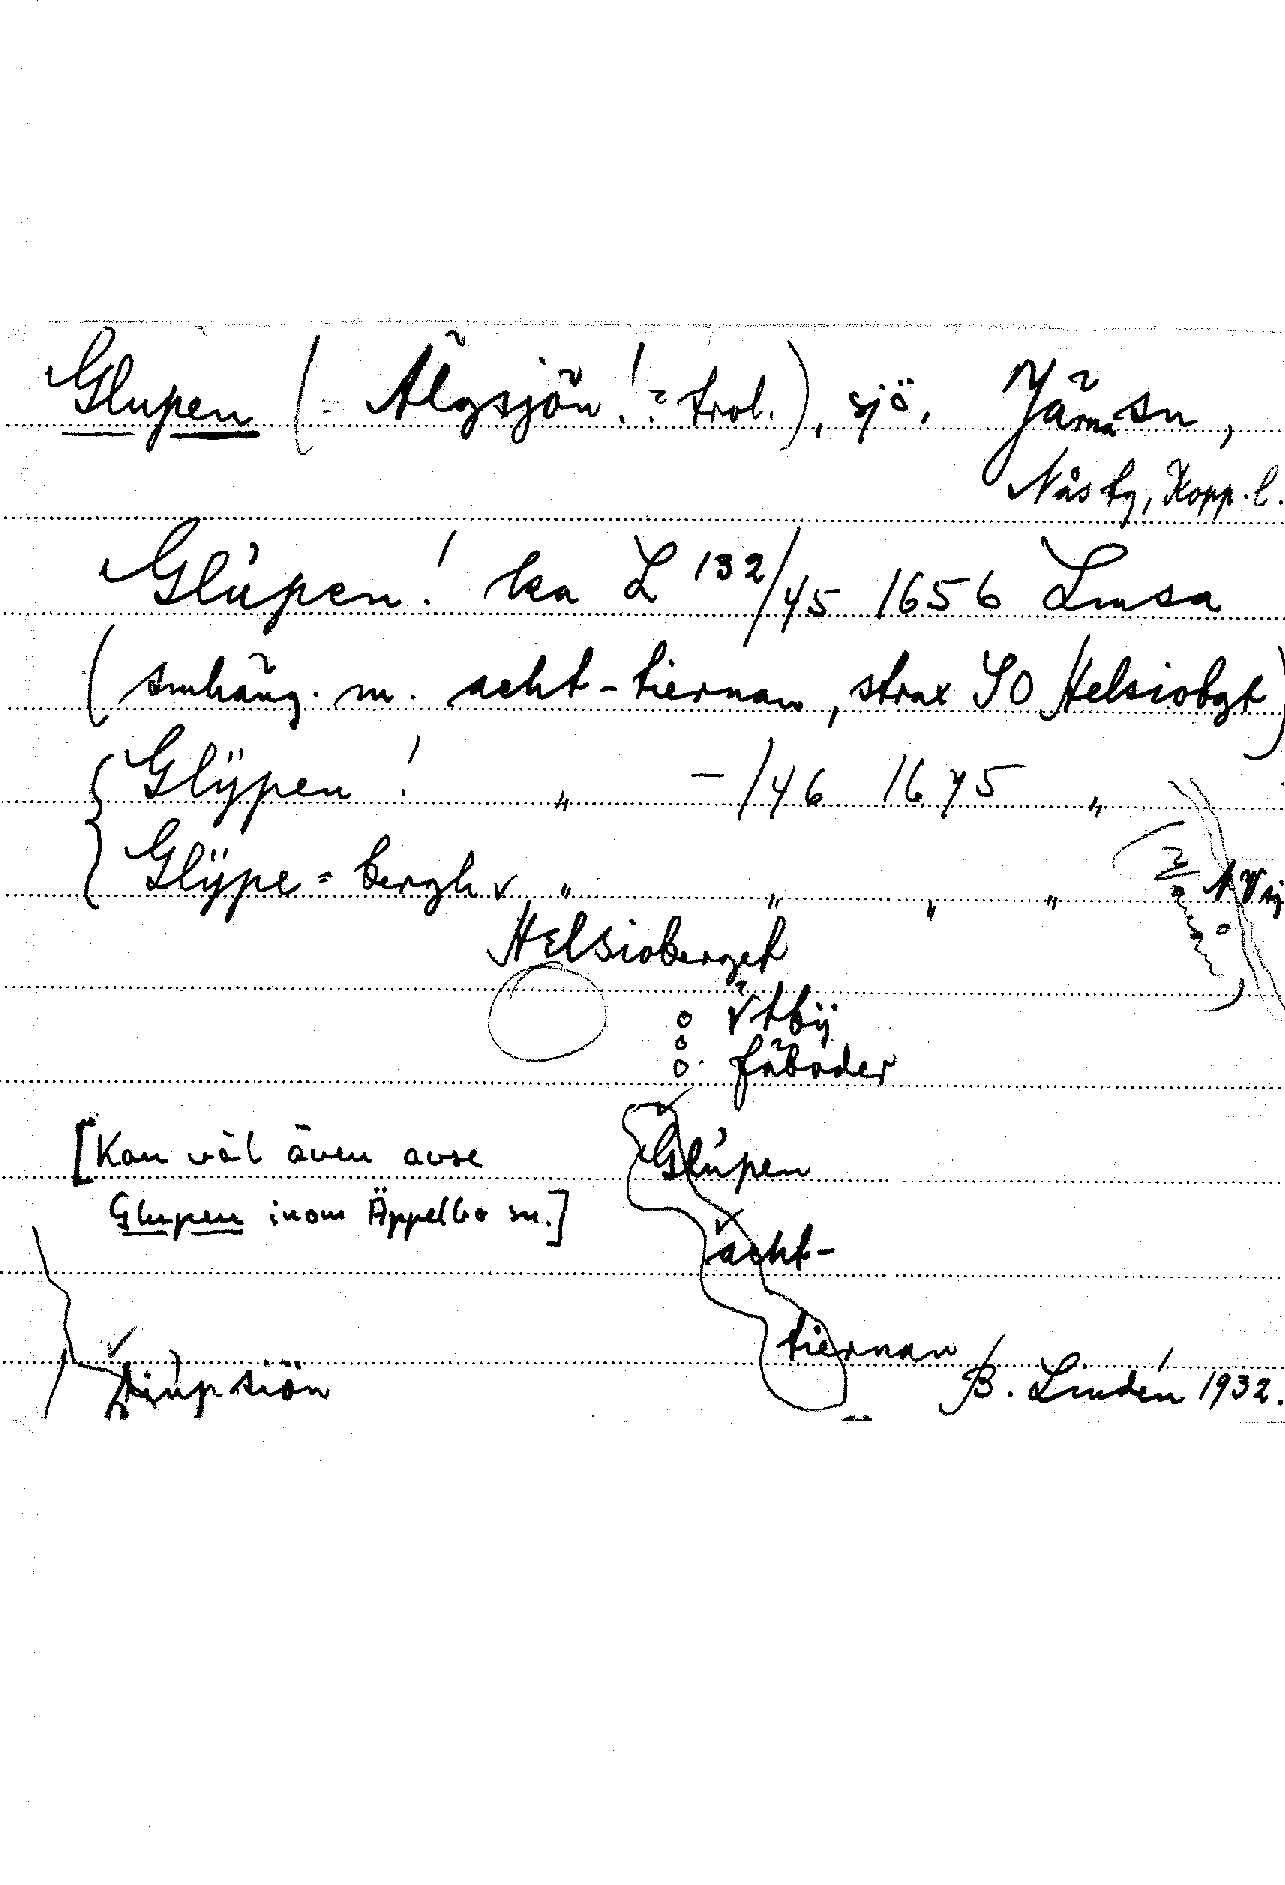 Glupen (= Älgsjön! ? trol.), sjö, Järna sn,
Nås tg, Kopp. l.
Glupen! ka L 132/45 1656 Lmsa
(smhäng. m. acht-tiernan, strax SO Helsiobgt)
Glÿpen! " -/46 1675 "
Glÿpe=bergh " " " "
Helsioberget
Vtbÿ
fäboder
Glupen
[Kan väl även avse
Glupen inom Äppelbo sn.]
acht-
tiernan
Diupsiön
B. Lindén 1932.